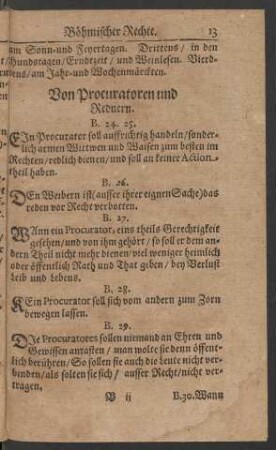 Böhmischer Rechte. 13
am Sonn-und Feyertagen. Drittens/ in den
Hundstagen/Erndtzeit/ und Weinlesen. Vierd-
tens/am Jahr-und Wochenmärckten.
Von Procuratoren und
Rednern.
B. 24. 25.
EIn Procurator soll auffrichtig handeln/sonder-
lich armen Wittwen und Waisen zum besten im
Rechten/redlich dienen/ und soll an keiner Action
theil haben.
B. 26.
DEn Weibern ist(ausser ihrer eignen Sache)das
reden vor Recht verbotten.
B. 27.
WAnn ein Procurator, eins theils Gerechtigkeit
gesehen/und von ihm gehört/ so soll er dem an-
dern Theil nicht mehr dienen/ viel weniger heimlich
oder öffentlich Rath und That geben/ bey Verlust
Leib und Lebens.
B. 28.
KEin Procurator soll sich vom andern zum Zorn
bewegen lassen.
B. 29.
DIe Procuratores sollen niemand an Ehren und
Gewissen antasten/ man wolte sie denn öffent-
lich berühren/ So sollen sie auch die Leute nicht ver-
binden/als solten sie sich/ ausser Recht/nicht ver-
tragen.
B ii B.30.Wann